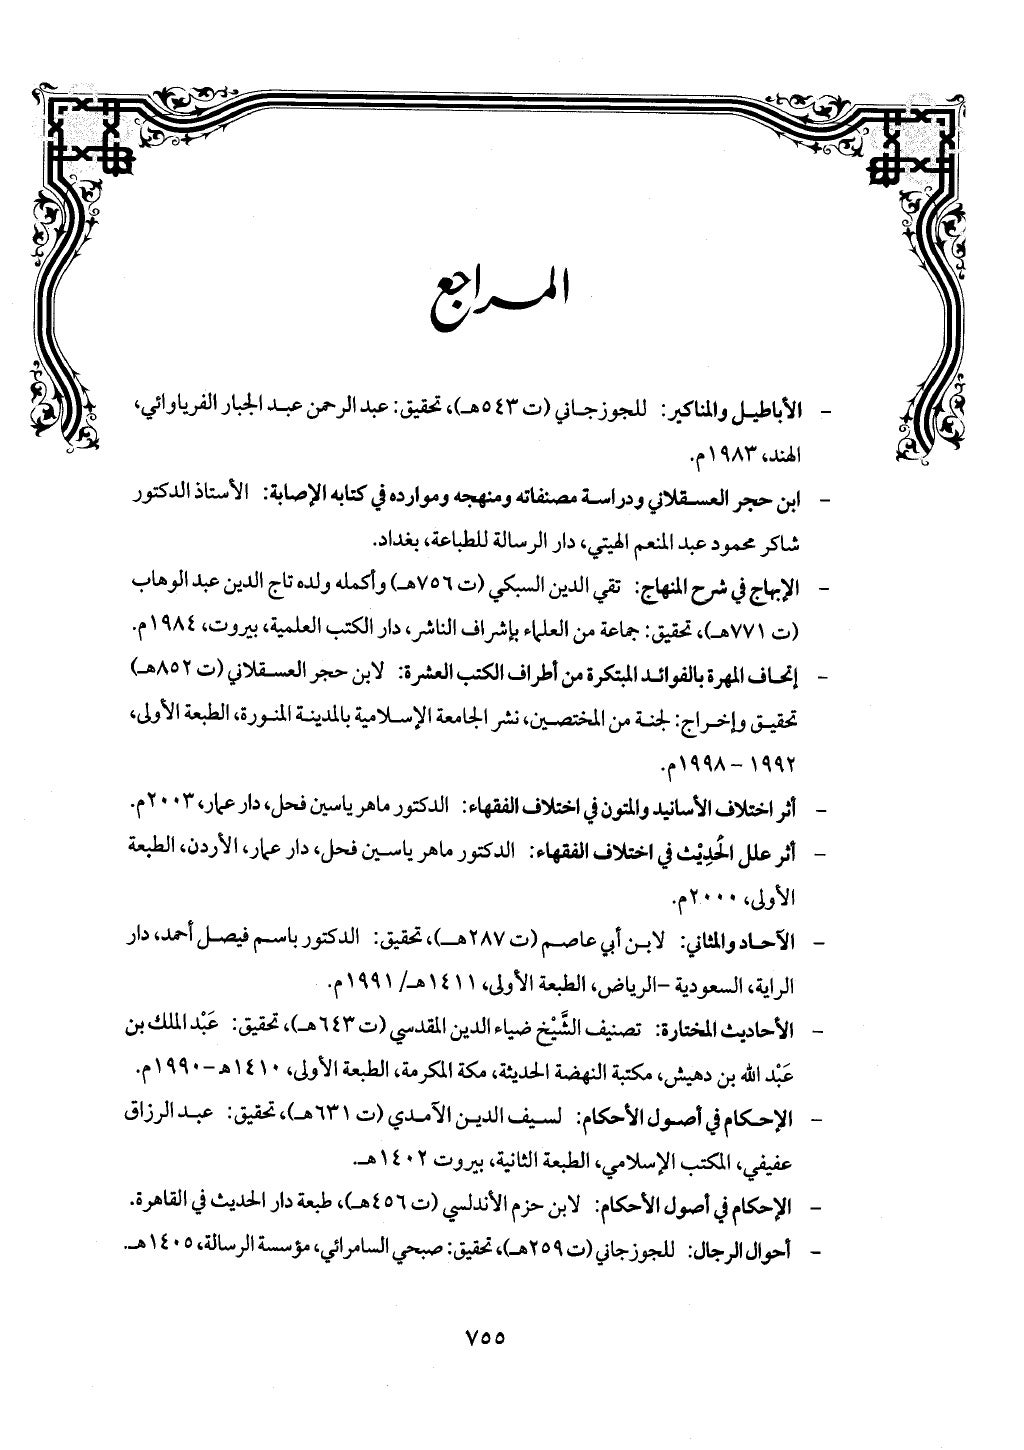 المراجع
- الأباطيل والمناكير: للجوزجاني (ت ٥٤٣هـ)، تحقيق: عبد الرحمن عبد الجبار الفريوائي،
الهند، ١٩٨٣م.
- ابن حجر العسقلاني ودراسة مصنفاته ومنهجه وموارده في كتابه الإصابة: الأستاذ الدكتور
شاكر محمود عبد المنعم الهيتي، دار الرسالة للطباعة، بغداد.
- الإبهاج في شرح المنهاج: تقي الدين السبكي (ت ٧٥٦هـ) وأكمله ولده تاج الدين عبد الوهاب
(ت ٧٧١هـ)، تحقيق: جماعة من العلماء بإشراف الناشر، دار الكتب العلمية، بيروت، ١٩٨٤م.
- إتحاف المهرة بالفوائد المبتكرة من أطراف الكتب العشرة: لابن حجر العسقلاني (ت ٨٥٢هـ)
تحقيق وإخراج: لجنة من المختصين، نشر الجامعة الإسلامية بالمدينة المنورة، الطبعة الأولى،
١٩٩٢ – ١٩٩٨م.
- أثر اختلاف الأسانيد والمتون في اختلاف الفقهاء: الدكتور ماهر ياسين فحل، دار عمار، ٢٠٠٣م.
- أثر علل الحَدِيْث في اختلاف الفقهاء: الدكتور ماهر ياسين فحل، دار عمار، الأردن، الطبعة
الأولى، ٢٠٠٠م.
- الآحاد والمثاني: لابن أبي عاصم (ت ٢٨٧هـ)، تحقيق: الدكتور باسم فيصل أحمد، دار
الراية، السعودية –الرياض، الطبعة الأولى، ١٤١١هـ/ ١٩٩١م.
- الأحاديث المختارة: تصنيف الشَّيْخ ضياء الدين المقدسي (ت ٦٤٣هـ)، تحقيق: عَبْد الملك بن
عَبْد الله بن دهيش، مكتبة النهضة الحديثة، مكة المكرمة، الطبعة الأولى، ١٤١٠هـ –١٩٩٠م.
- الإحكام في أصول الأحكام: لسيف الدين الآمدي (ت ٦٣١هـ)، تحقيق: عبد الرزاق
عفيفي، المكتب الإسلامي، الطبعة الثانية، بيروت ١٤٠٢هـ.
- الإحكام في أصول الأحكام: لابن حزم الأندلسي (ت ٤٥٦هـ)، طبعة دار الحديث في القاهرة.
- أحوال الرجال: للجوزجاني (ت ٢٥٩هـ)، تحقيق: صبحي السامرائي، مؤسسة الرسالة، ١٤٠٥هـ.
٧٥٥